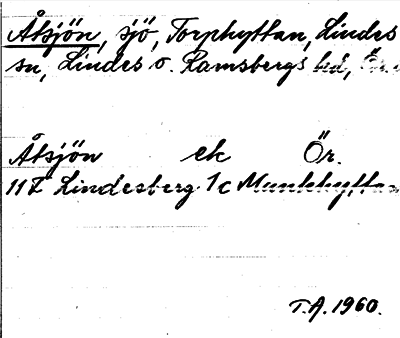 Åtsjön, sjö, Torphyttan, Lindes
sn, Lindes o. Ramsbergs hd, Ör.
Åtsjön ek Ör.
11 F Lindesberg 1c Munkhyttan
T.A. 1960.